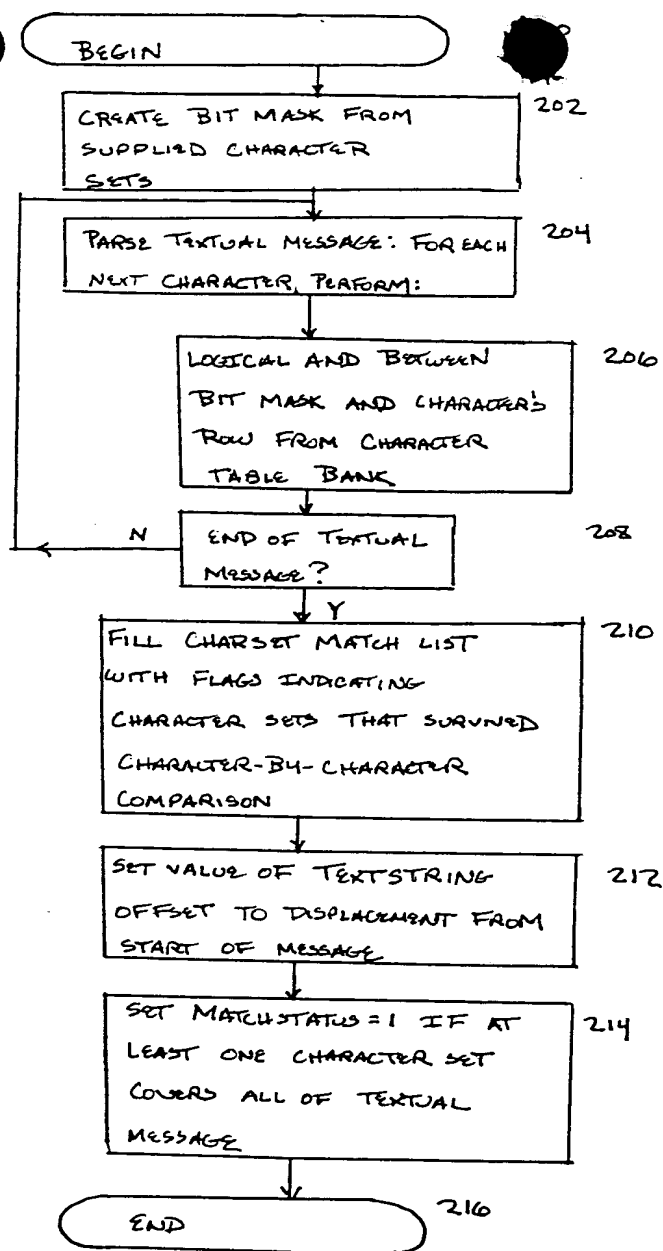 BEGIN
CREATE BIT MASK FROM
SUPPLIED CHARACTER
SETS
202
PARSE TEXTUAL MESSAGE: FOR EACH
NEXT CHARACTER, PERFORM:
204
LOGICAL AND BETWEEN
BIT MASK AND CHARACTER'S
ROW FROM CHARACTER
TABLE BANK
206
END OF TEXTUAL
MESSAGE?
208
N
Y
FILL CHARSET MATCH LIST
WITH FLAGS INDICATING
CHARACTER SETS THAT SURVIVED
CHARACTER-BY-CHARACTER
COMPARISON
210
SET VALUE OF TEXTSTRING
OFFSET TO DISPLACEMENT FROM
START OF MESSAGE
212
SET MATCHSTATUS = 1 IF AT
LEAST ONE CHARACTER SET
COVERS ALL OF TEXTUAL
MESSAGE
214
END
216